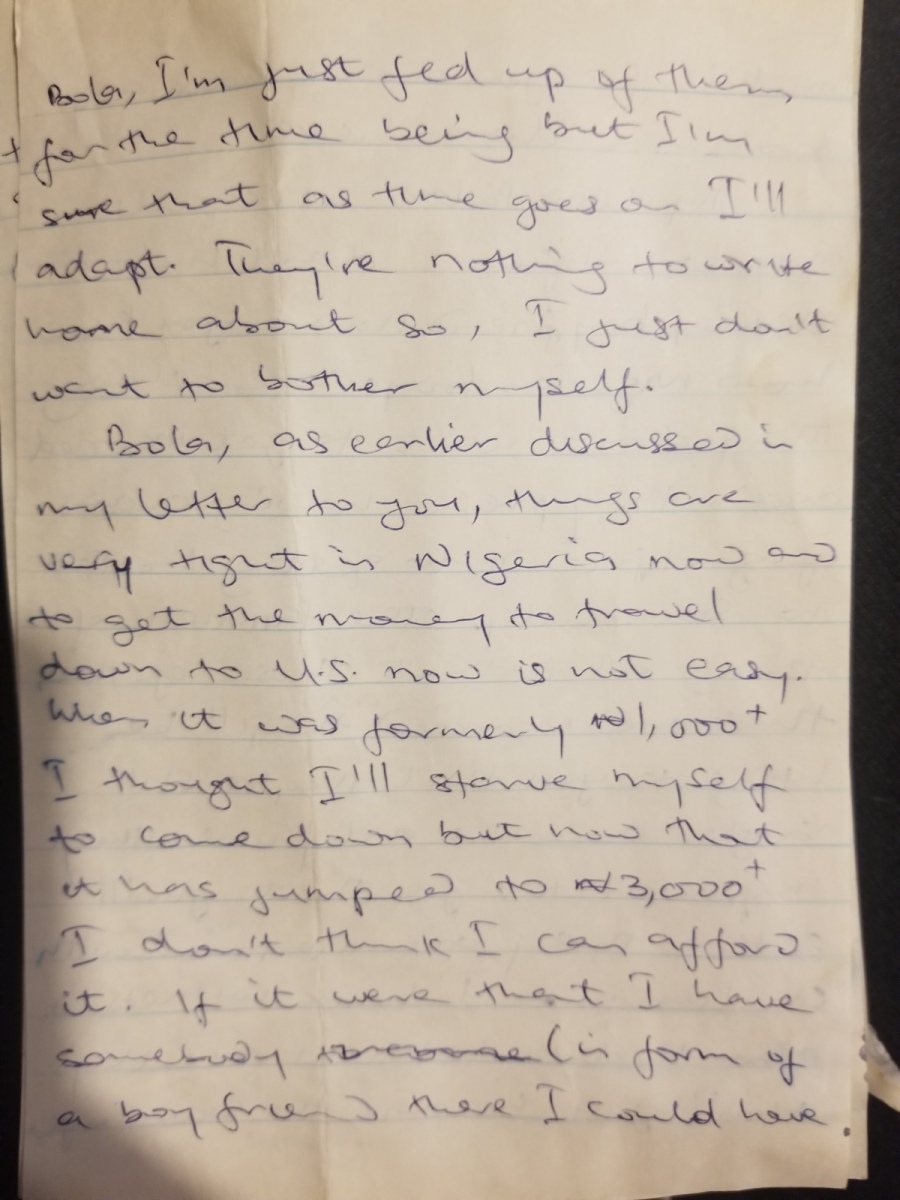 Bola, I'm just fed up of them
for the time being but I'm
sure that as time goes on I'll
adapt. They're nothing to write
home about so, I just don't
want to bother myself.
Bola, as earlier discussed in
my letter to you, things are
very tight in Nigeria now and
to get the money to travel
down to U.S. now is not easy.
When it was formerly ₦1,000+
I thought I'll starve myself
to come down but now that
it has jumped to ₦3,000+
I don't think I can afford
it. If it were that I have
somebody (in form of
a boy friend there I could have